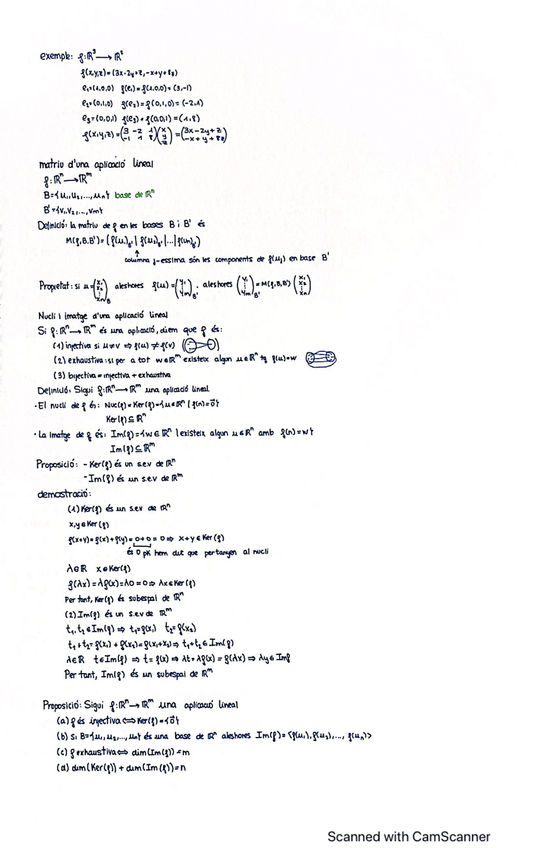 exemple: f:ℝ³ ⟶ ℝ²
f(x,y,z)=(3x-2y+z,-x+y+8z)
e₁=(1,0,0) f(e₁)=f(1,0,0)=(3,-1)
e₂=(0,1,0) f(e₂)=f(0,1,0)=(-2,1)
e₃=(0,0,1) f(e₃)=f(0,0,1)=(1,8)
f(x,y,z)=(3 -2 1 / -1 1 8)(x / y / z)=(3x-2y+z / -x+y+8z)
matriu d'una aplicació lineal
f:ℝⁿ⟶ℝᵐ
B={u₁,u₂,...,uₙ} base de ℝⁿ
B'={v₁,v₂,...,vm}
Definició: la matriu de f en les bases B i B' és
M(f,B,B')=(f(u₁)B' | f(u₂)B' |...| f(un)B')
columna j-èssima són les components de f(uj) en base B'
Propietat: si u=(x₁ / x₂ / ⋮ / xn)B aleshores f(u)=(y₁ / ⋮ / ym)B'. aleshores (y₁ / ⋮ / ym)B'=M(f,B,B')(x₁ / ⋮ / xn)
Nucli i imatge d'una aplicació lineal
Si f:ℝⁿ⟶ℝᵐ és una aplicació, diem que f és:
(1) injectiva si u≠v ⇒ f(u)≠f(v)
(2) exhaustiva: si per a tot w∈ℝᵐ existeix algun u∈ℝⁿ tq f(u)=w
(3) bijectiva = injectiva + exhaustiva
Definició: Sigui f:ℝⁿ⟶ℝᵐ una aplicació lineal
·El nucli de f és: Nuc(f)=Ker(f)={u∈ℝⁿ | f(u)=0⃗}
Ker(f)⊆ℝⁿ
·La imatge de f és: Im(f)={w∈ℝᵐ | existeix algun u∈ℝⁿ amb f(u)=w}
Im(f)⊆ℝᵐ
Proposició: - Ker(f) és un s.e.v de ℝⁿ
- Im(f) és un s.e.v de ℝᵐ
demostració:
(1) Ker(f) és un s.e.v de ℝⁿ
x,y∈Ker(f)
f(x+y)=f(x)+f(y)=0+0=0⇒ x+y∈Ker(f)
és 0 pk hem dit que pertanyen al nucli
λ∈ℝ x∈Ker(f)
f(λx)=λf(x)=λ0=0⇒ λx∈Ker(f)
Per tant, Ker(f) és subespai de ℝⁿ
(2) Im(f) és un s.e.v de ℝᵐ
t₁,t₂∈Im(f) ⇒ t₁=f(x₁) t₂=f(x₂)
t₁+t₂=f(x₁)+f(x₂)=f(x₁+x₂)⇒ t₁+t₂∈Im(f)
λ∈ℝ t∈Im(f) ⇒ t=f(x) ⇒ λt=λf(x)=f(λx) ⇒ λy∈Imf
Per tant, Im(f) és un subespai de ℝᵐ
Proposició: Sigui f:ℝⁿ⟶ℝᵐ una aplicació lineal
(a) f és injectiva ⟺ Ker(f)={0⃗}
(b) Si B={u₁,u₂,...,un} és una base de ℝⁿ aleshores Im(f)=<f(u₁),f(u₂),..., f(un)>
(c) f exhaustiva ⟺ dim(Im(f))=m
(d) dim(Ker(f))+dim(Im(f))=n
Scanned with CamScanner